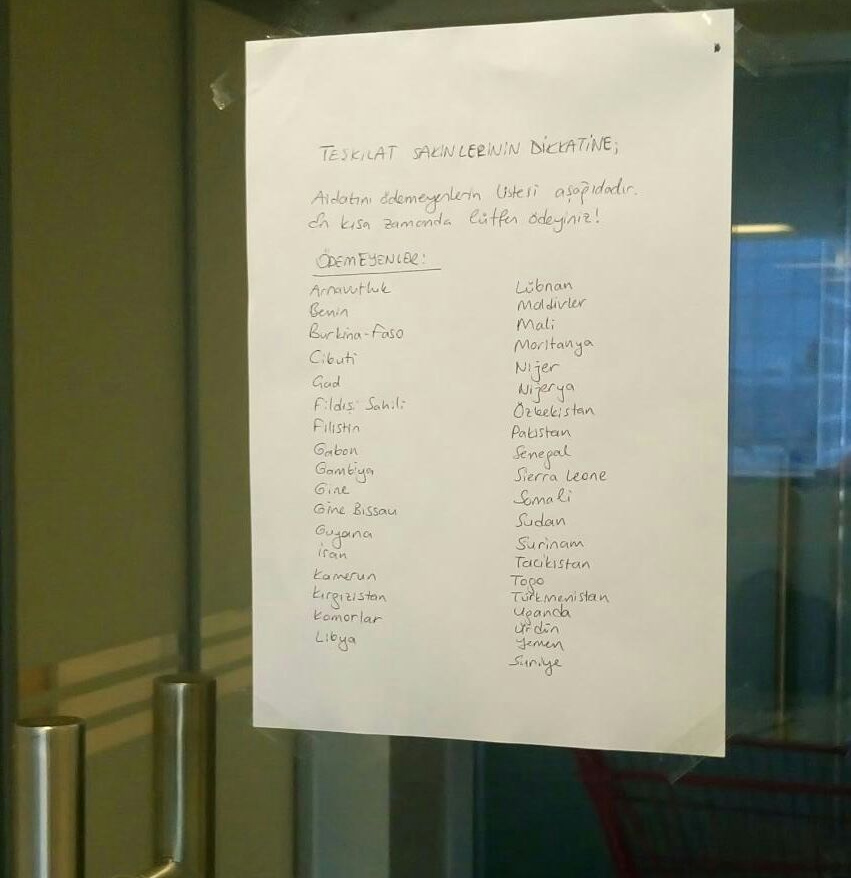 TESKILAT SAKİNLERİNİN DİKKATİNE;
Aidatını ödemeyenlerin listesi aşağıdadır.
En kısa zamanda lütfen ödeyiniz!
ÖDEMEYENLER:
Arnavutluk
Benin
Burkina-Faso
Cibuti
Çad
Fildişi Sahili
Filistin
Gabon
Gambiya
Gine
Gine Bissau
Guyana
İran
Kamerun
Kırgızistan
Komorlar
Libya
Lübnan
Maldivler
Mali
Moritanya
Nijer
Nijerya
Özbekistan
Pakistan
Senegal
Sierra Leone
Somali
Sudan
Surinam
Tacikistan
Togo
Türkmenistan
Uganda
Ürdün
Yemen
Suriye